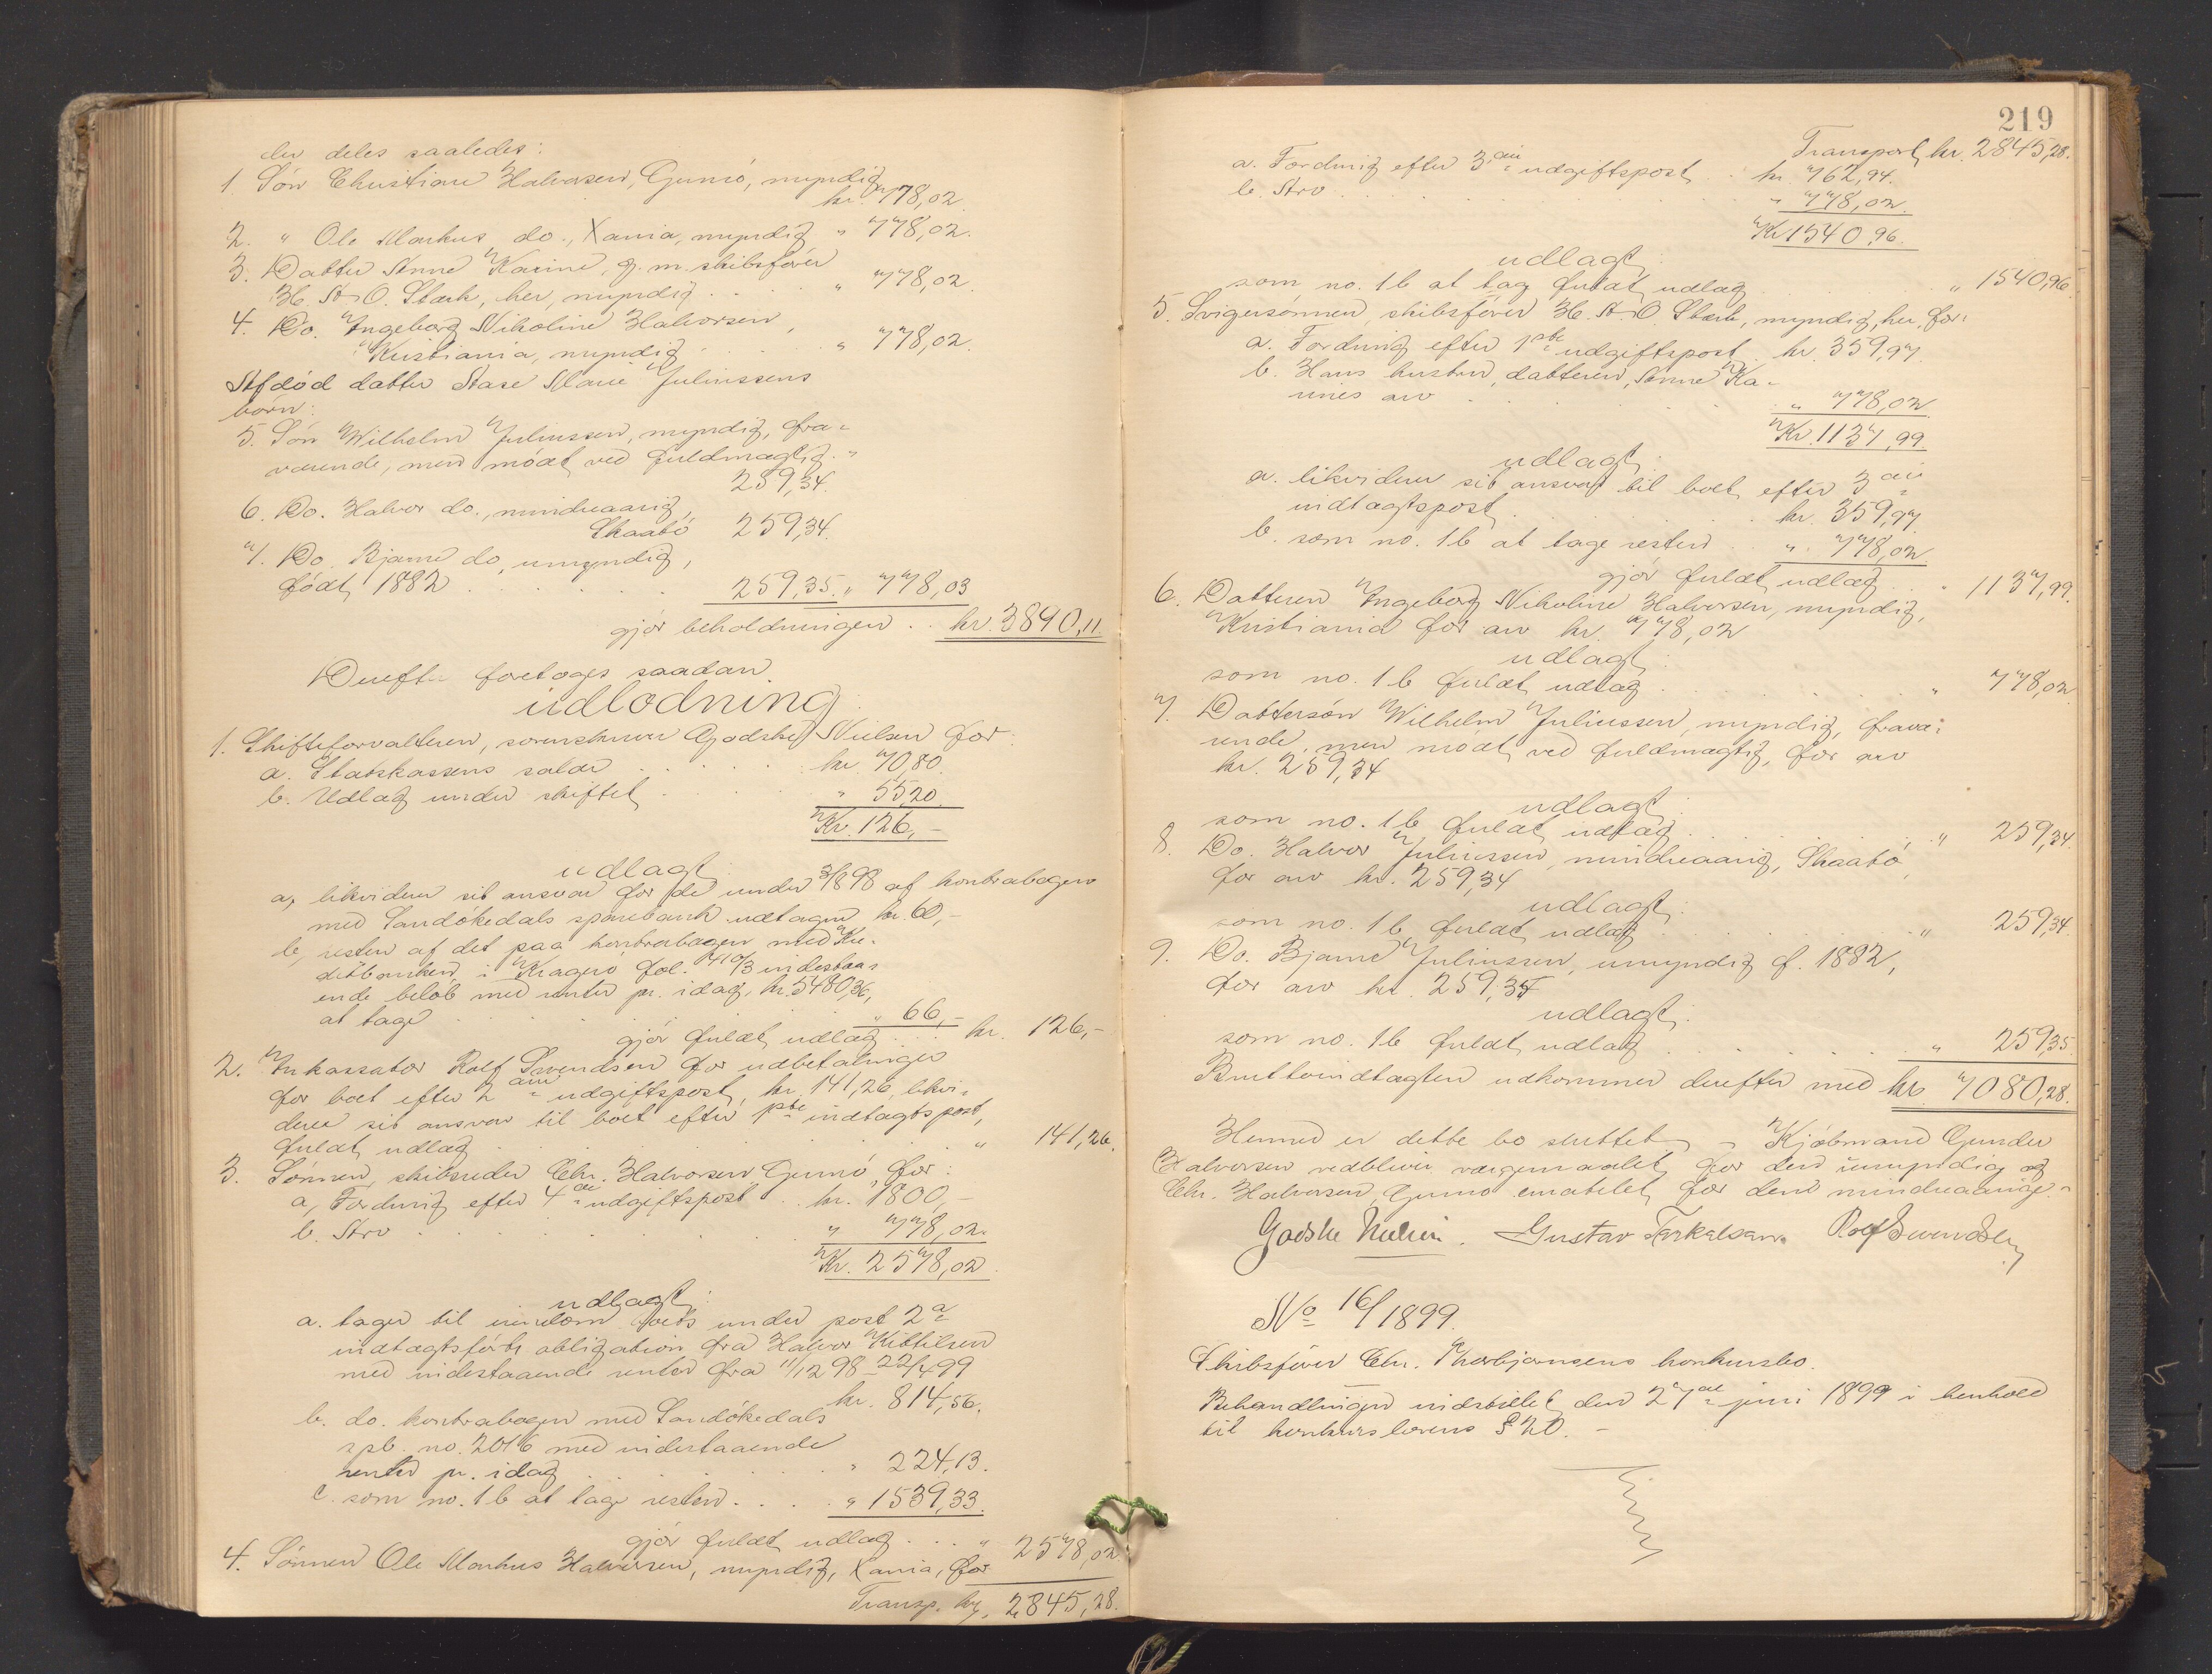 der deles saaledes:
1. Søn Christian Halvorsen, Gumø, myndig
kr. 778,02
2. " Ole Markus do., Xania, myndig " 778,02.
3. Datter Anne Karine, g. m. skibsfører
H. A. O. Stærk, her, myndig . . . " 778,02.
4. Do. Ingeborg Nikoline Halvorsen,
Kristiania, myndig . . . " 778,02.
Afdød datter Aase Marie Juliussens
børn:
5. Søn Wilhelm Juliussen, myndig, fra-
værende, men mødt ved fuldmægtig. "
259,34.
6. Do. Halvor do., mindreaarig,
Skaabø 259,34.
7. Do. Bjarne do, umyndig,
født 1882 . . . 259,35. " 778,03
gjør beholdningen . . kr. 3890,11
Derefter foretoges saadan
udlodning:
1. Skifteforvalteren, sorenskriver Godske Nielsen for:
a. Statskassens saldo . . . kr. 70,80.
b. Udlæg under skiftet . . . " 55,20.
Kr. 126,-
udlagt:
a, likviderer sit ansvar for de under 3/8 98 af kontrabogen
med Sandøkedals sparebank udtagne kr. 60,-
b, resten af det paa kontrabogen med Kre-
ditbanken i Kragerø fol. 710/3 indestaa-
ende beløb med renter pr. idag, kr. 5480,36,
at tage . . . " 66,-
gjør fuldt udlæg . . . kr. 126,-
2. Inkassator Rolf Svendsen for udbetalinger
for boet efter 2den udgiftspost, kr. 141,26, likvi-
derer sit ansvar til boet efter 1ste indtægtspost,
fuldt udlæg . . . " 141,26.
3. Sønnen, skibsreder Chr. Halvorsen, Gumø, for:
a, Fordring efter 4de udgiftspost . . kr. 1800,-
b. Arv . . . " 778,02.
Kr. 2578,02.
udlagt:
a. tager til eiendom boets under post 2a
indtægtsførte obligation fra Halvor Kittilsen
med indestaaende renter fra 11/12 98 - 22/4 99
kr. 814,56.
b. do. kontrabogen med Sandøkedals
spb. no. 2016 med indestaaende
renter pr. idag . . . " 224,13.
c. som no. 1 b at tage resten . . . " 1539,33.
gjør fuldt udlæg . . . " 2578,02.
4. Sønnen Ole Markus Halvorsen, myndig, Xania, for
Transp. kr. 2845,28.
219
Transport kr. 2845,28.
a. Fordring efter 3die udgiftspost . . kr. 762,94.
b. Arv . . . " 778,02.
Kr. 1540,96.
udlagt:
som no. 1 b at tag fuldt udlæg . . . " 1540,96
5. Svigersønnen, skibsfører H. A. O Stærk, myndig, her, for:
a. Fordring efter 1ste udgiftspost . kr. 359,97.
b. Hans hustru, datteren, Anne Ka-
rines arv . . . " 778,02.
Kr. 1137,99.
udlagt:
a. likviderer sit ansvar til boet efter 3die
indtægtspost . . . kr. 359,97.
b. som no. 1 b at tage resten . . " 778,02
gjør fuldt udlæg . . " 1137,99.
6. Datteren Ingeborg Nikoline Halvorsen, myndig,
Kristiania for arv kr. 778,02
udlagt:
som no. 1 b fuldt udlæg . . . " 778,02
7. Dattersøn Wilhelm Juliussen, myndig, fravæ-
rende, men mødt ved fuldmægtig, for arv
kr. 259,34
udlagt:
som no. 1 b fuldt udlæg . . . " 259,34.
8. Do. Halvor Juliussen, mindreaarig, Skaabø,
for arv kr. 259,34
udlagt:
som no. 1 b fuldt udlæg . . . " 259,34.
9. Do. Bjarne Juliussen, umyndig f. 1882,
for arv kr. 259,35
udlagt:
som no. 1 b fuldt udlæg . . . " 259,35.
Bruttoindtægten udkommer derefter med kr. 7080,28.
Hermed er dette bo sluttet. - Kjøbmand Gunder
Halvorsen vedbliver værgemaalet for den umyndige og
Chr. Halvorsen, Gumø curatelet for den mindreaarige. -
Godske Nielsen. Gustav Terkelsen. Rolf Svendsen
No 16/1899.
Skibsfører Chr. Thorbjørnsens konkursbo.
Behandlingen indstillet den 27de juni 1899 i henhold
til konkurslovens § 20. -